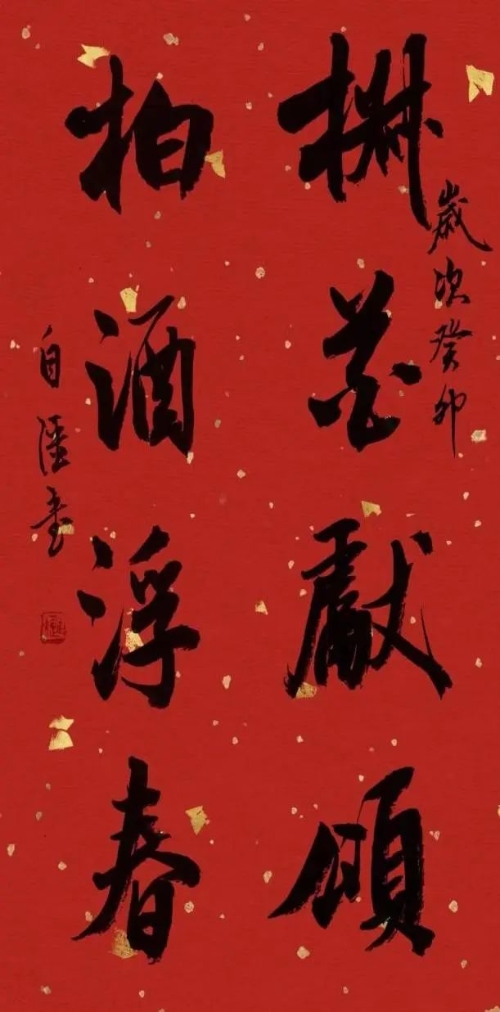 歲次癸卯
椒花獻頌
柏酒浮春
自書